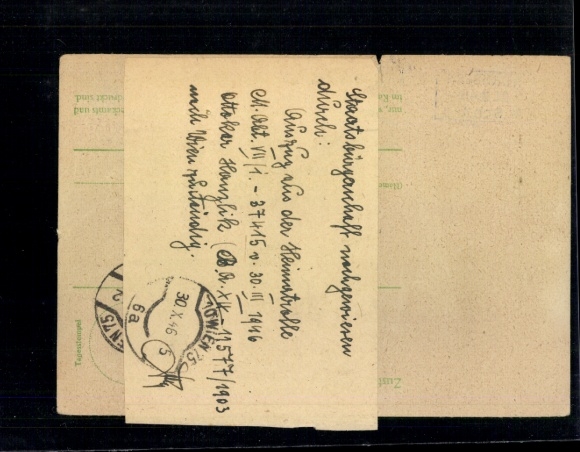 Staatsbürgerschaft nachgewiesen
durch:
Auszug aus der Heimatrolle
M. Abt. VII/1. - 37415 v. 30. III 1946
Ottokar Hanzlik ( A. XIV. 11577/1903
nach Wien zuständig.
WIEN 75
30.X.46
6a
EN 75
Tagesstempel